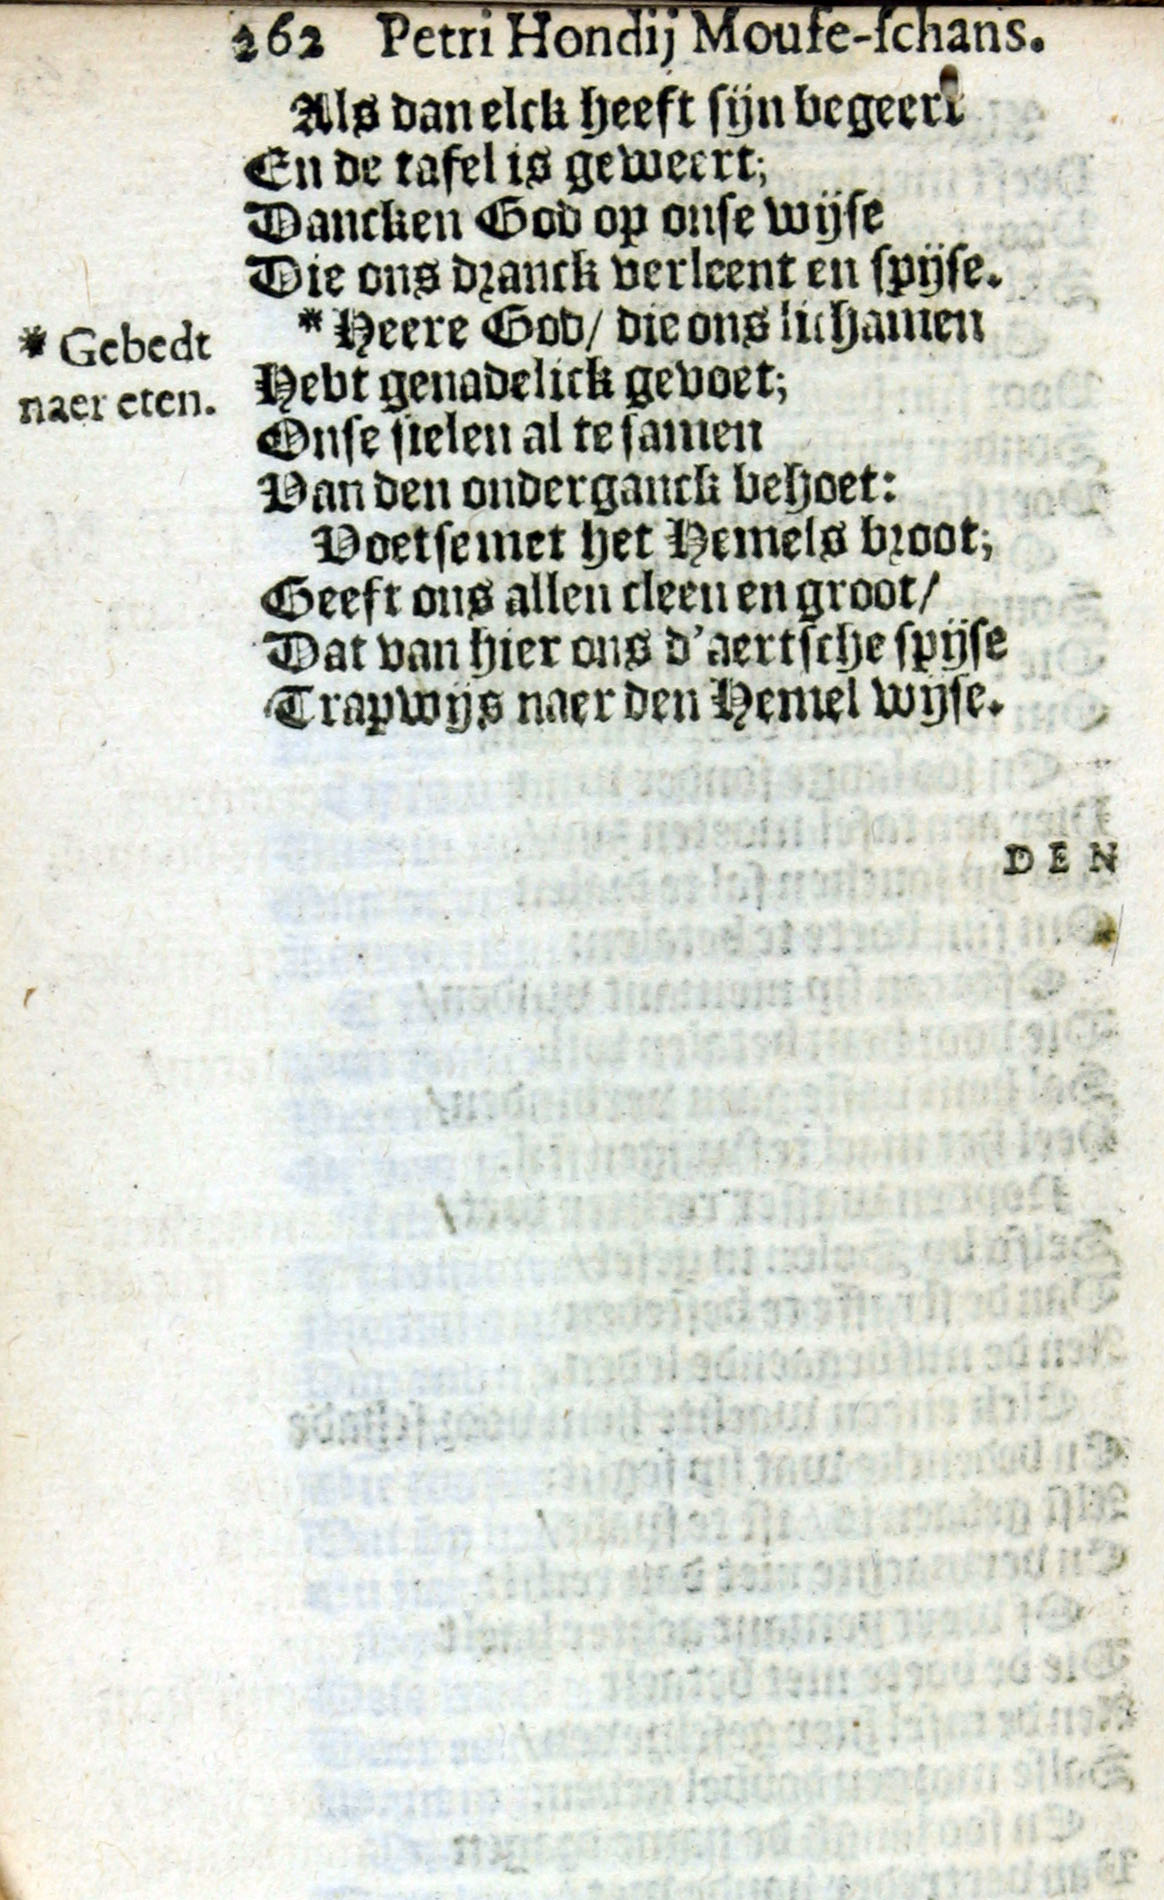 262 Petri Hondij Mouſe-ſchans.
Als dan elck heeft ſijn begeert
En de tafel is geweert;
Dancken God op onſe wijſe
Die ons dranck verleent en ſpijſe.
* Heere God/ die ons lichamen
Hebt genadelick gevoet;
Onſe ſielen al te ſamen
Van den onderganck behoet:
Voetſe met het Hemels broot;
Geeft ons allen cleen en groot/
Dat van hier ons d'aertſche ſpijſe
Trapwijs naer den Hemel wijſe.
* Gebedt
naer eten.
DEN